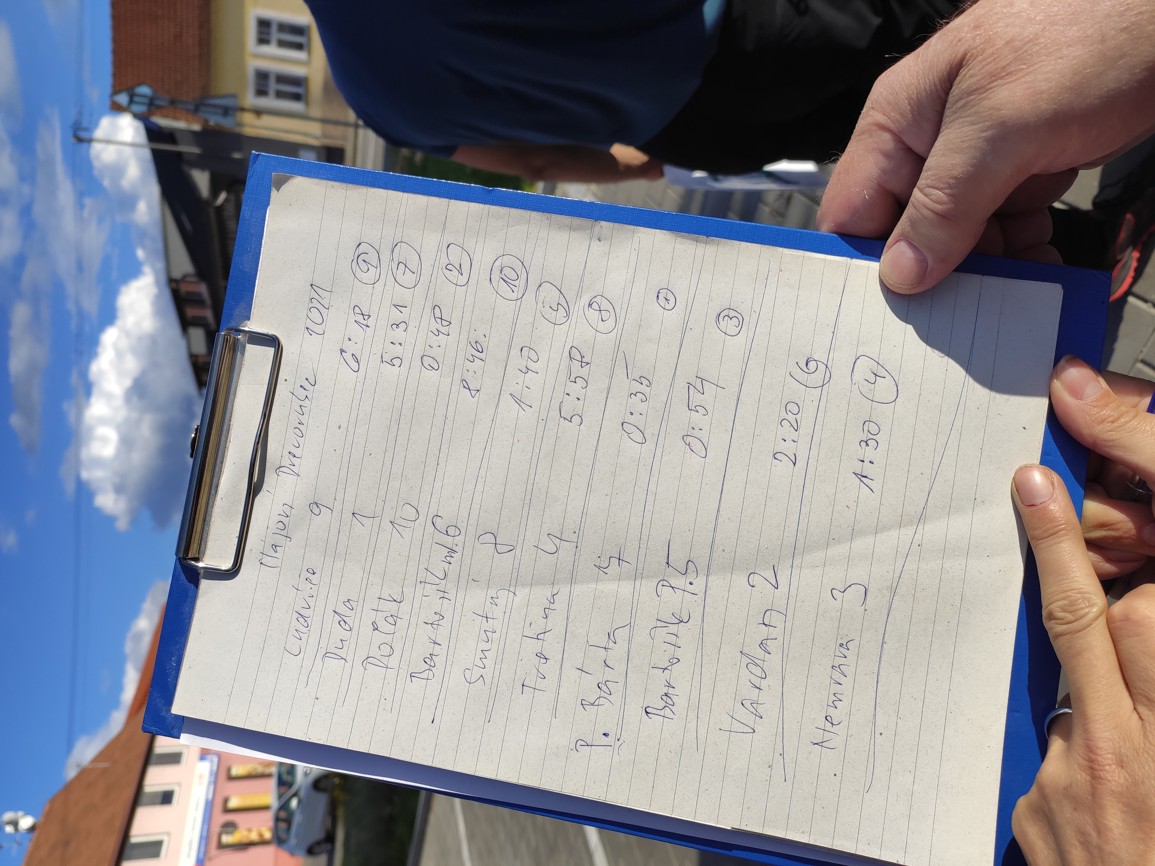 Májový Dřevorubec 2021
Ludvico 9 6:18 (9)
Duda 1 5:31 (7)
Polák 10 0:48 (2)
Bartošík ml. 6 8:46. (10)
Smutný 8 1:40 (5)
Tretina 4. 5:58 (8)
P. Bárta 7 0:35 (1)
Bartošík P. 5 0:54 (3)
Vardan 2 2:20 (6)
Nemrava 3 1:30 (4)